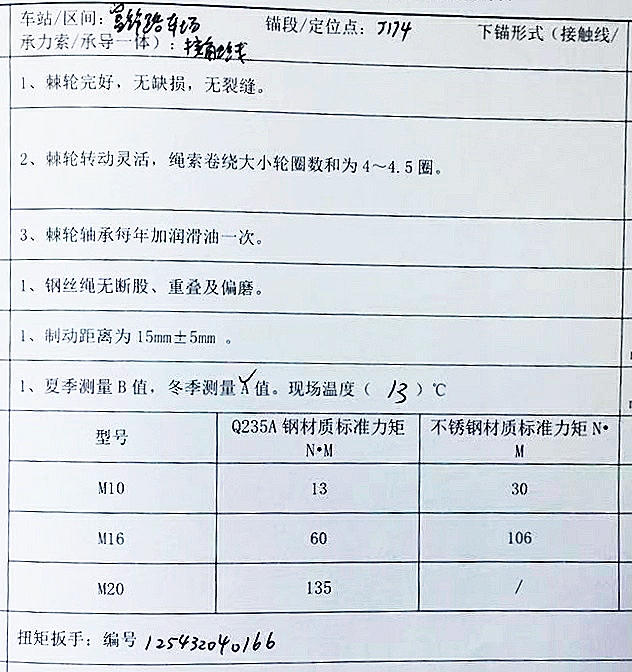 车站/区间：富锦路车场 锚段/定位点：J174 下锚形式（接触线/
承力索/承导一体）：接触线
1、棘轮完好，无缺损，无裂缝。
2、棘轮转动灵活，绳索卷绕大小轮圈数和为4～4.5圈。
3、棘轮轴承每年加润滑油一次。
1、钢丝绳无断股、重叠及偏磨。
1、制动距离为15mm±5mm 。
1、夏季测量B值，冬季测量A值。现场温度（ 13 ）℃
型号 Q235A钢材质标准力矩 不锈钢材质标准力矩N•
N•M M
M10 13 30
M16 60 106
M20 135 /
扭矩扳手：编号 125432040166